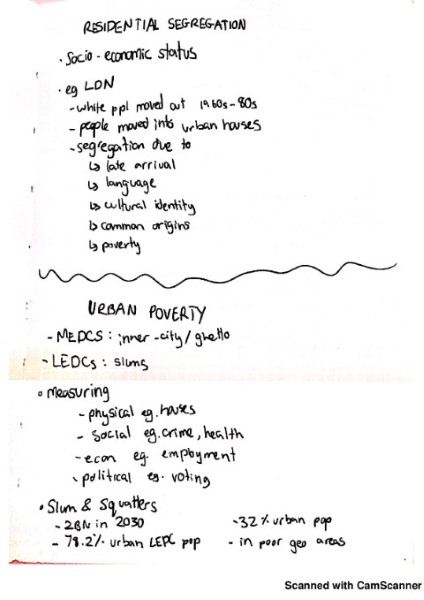 RESIDENTIAL SEGREGATION
• Socio-economic status
• eg LDN
- white ppl moved out 1960s-80s
- people moved into urban houses
- segregation due to
↳ late arrival
↳ language
↳ cultural identity
↳ common origins
↳ poverty
URBAN POVERTY
- MEDCS: inner-city/ghetto
- LEDCs: slums
• Measuring
- physical eg. houses
- social eg. crime, health
- econ eg. employment
- political eg. voting
• Slum & Squatters
- 2BN in 2030 - 32% urban pop
- 78.2% urban LEDC pop - in poor geo areas
Scanned with CamScanner